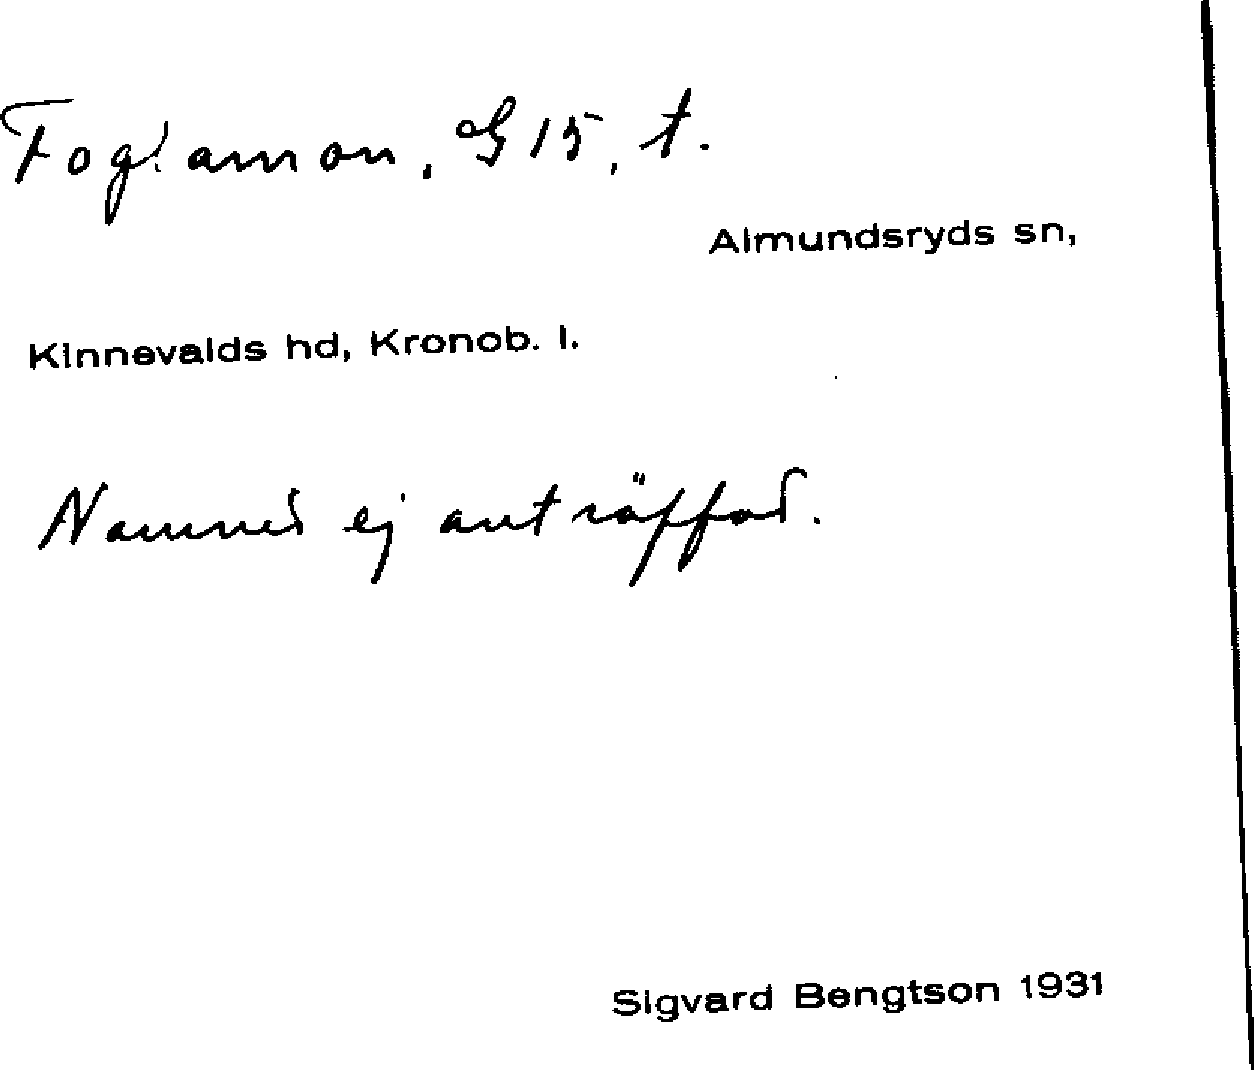 Foglamon, G 15, t.
Almundsryds sn,
Kinnevalds hd, Kronob. l.
Namnet ej anträffat.
Sigvard Bengtson 1931